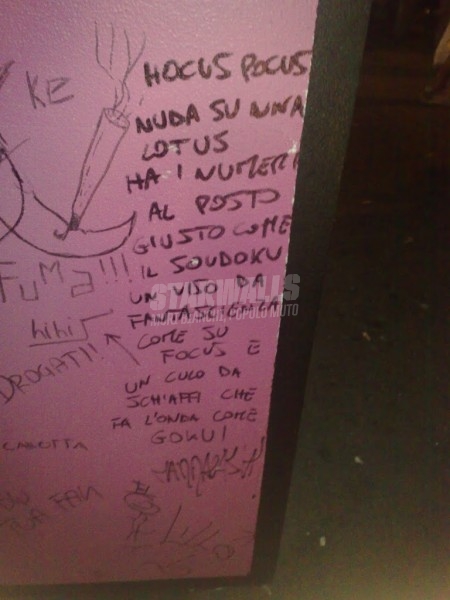 KE
HOCUS POCUS
NUDA SU UNA
LOTUS
HA I NUMERI
AL POSTO
GIUSTO COME
IL SOUDOKU
UN VISO DA
FANTASCIENZA
COME SU
FOCUS E
UN CULO DA
SCHIAFFI CHE
FA L'ONDA COME
GOKU!
FUMA!!!
hihi
DROGATI!!
FAN
STARWALLS
MURI BIANCHI, POPOLO MUTO